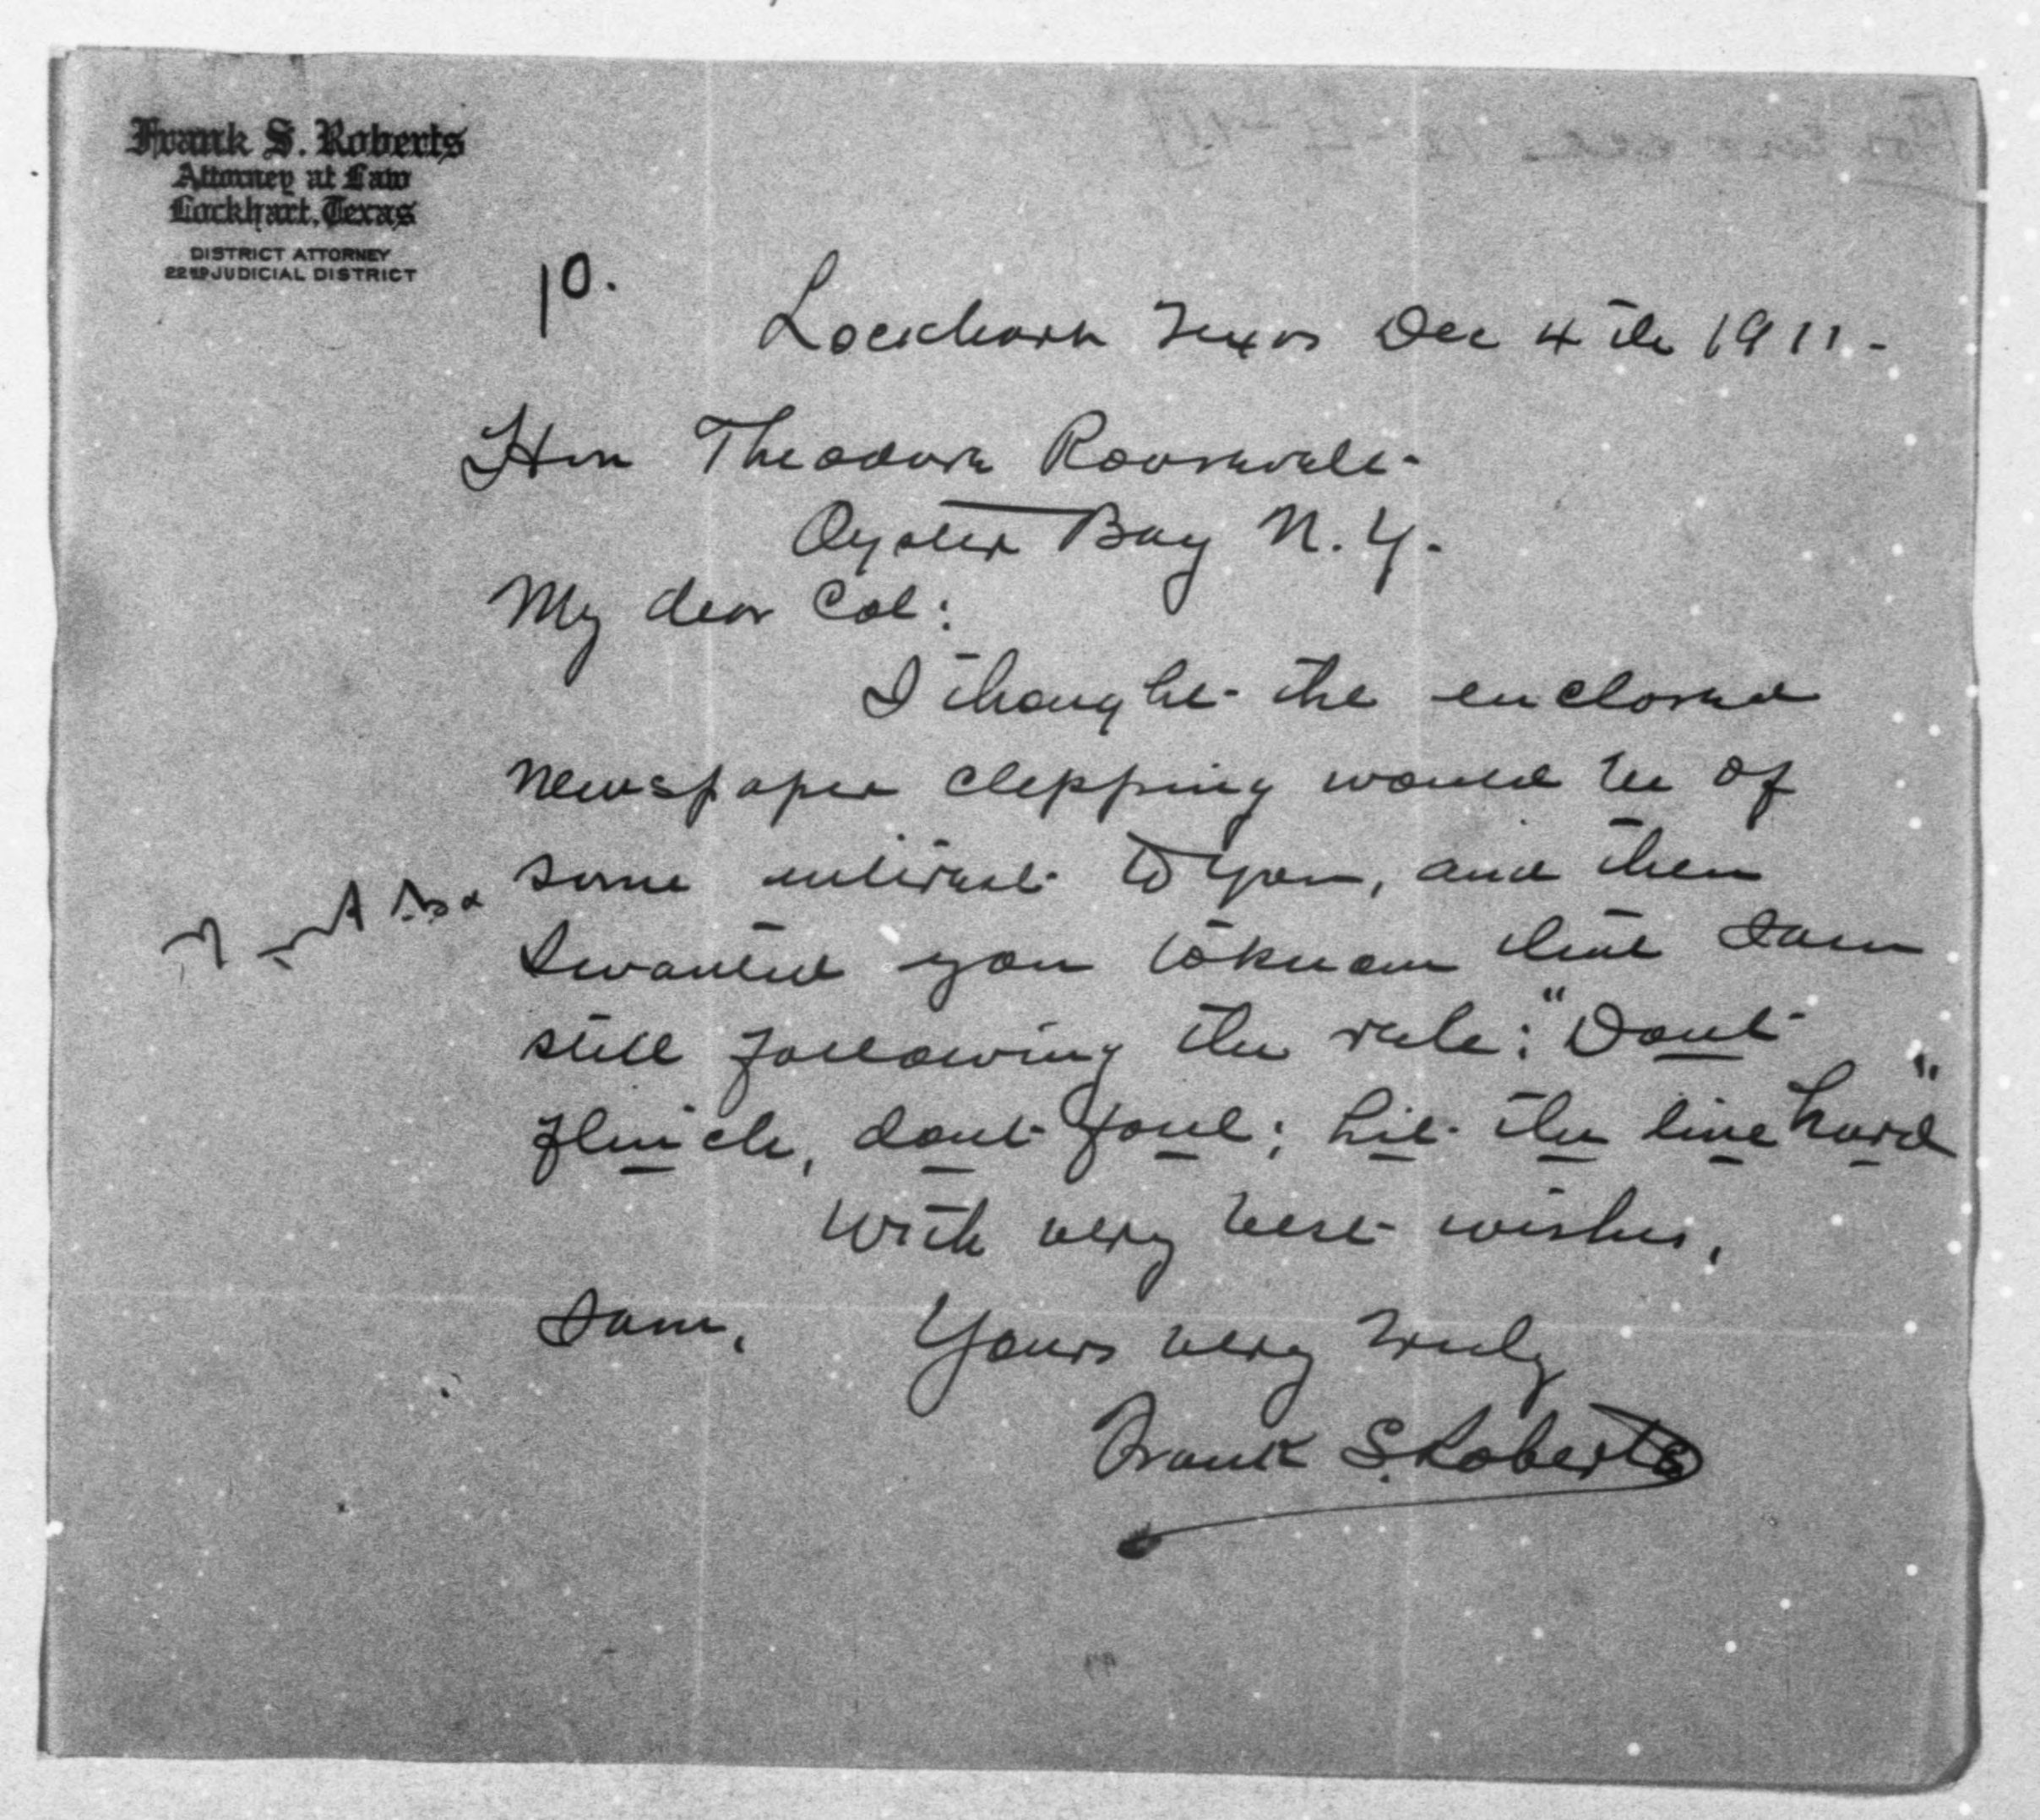 Frank S. Roberts
Attorney at Law
Lockhart, Texas
DISTRICT ATTORNEY
22ND JUDICIAL DISTRICT
Lockhart Texas Dec 4th 1911-
Hon Theodore Roosevelt-
Oyster Bay N.Y.
My dear Col:
I thought the enclosed
newspaper clipping would be of
some interest to you, and then
I wanted you to know that I am
still following the rule: "Dont
flinch, dont foul; hit the line hard"
With very best wishes,
I am, Yours very truly
Frank S. Roberts